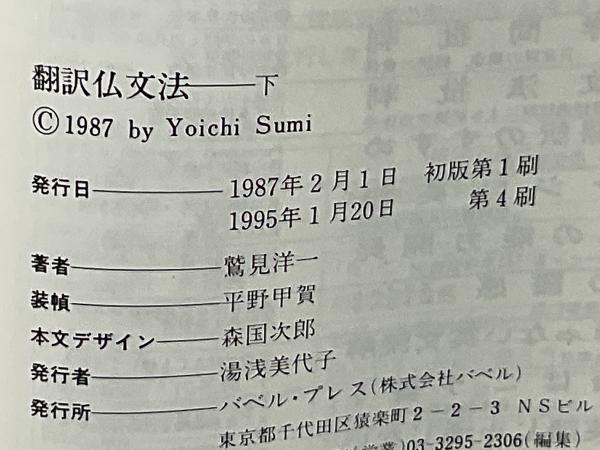 翻訳仏文法——下
Ⓒ1987 by Yoichi Sumi
発行日——1987年2月1日 初版第1刷
1995年1月20日 第4刷
著者——鷲見洋一
装幀——平野甲賀
本文デザイン——森国次郎
発行者——湯浅美代子
発行所——バベル・プレス(株式会社バベル)
東京都千代田区猿楽町2-2-3 NSビル
(営業)03-3295-2306(編集)